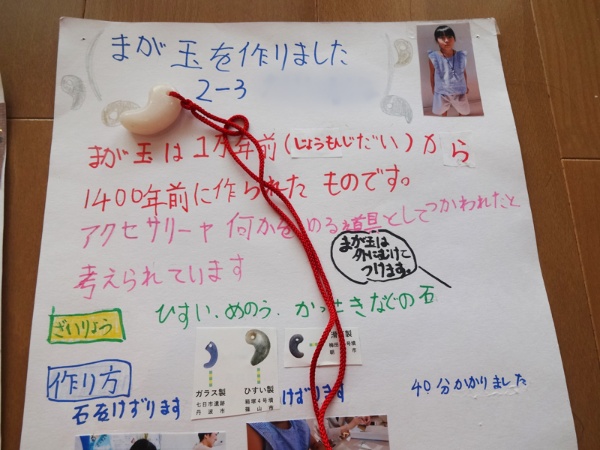 まが玉を作りました
2-3
まが玉は1万年前(じょうもんじだい)から
1400年前に作られたものです。
アクセサリーや何かを める道具としてつかわれたと
考えられています
まが玉は
外にむけて
つけます。
ざいりょう
ひすい.めのう.かっせきなどの石
ガラス製
七日市遺跡
丹波市
ひすい製
篠山市
作り方
石をけずります
けずります
40分かかりました